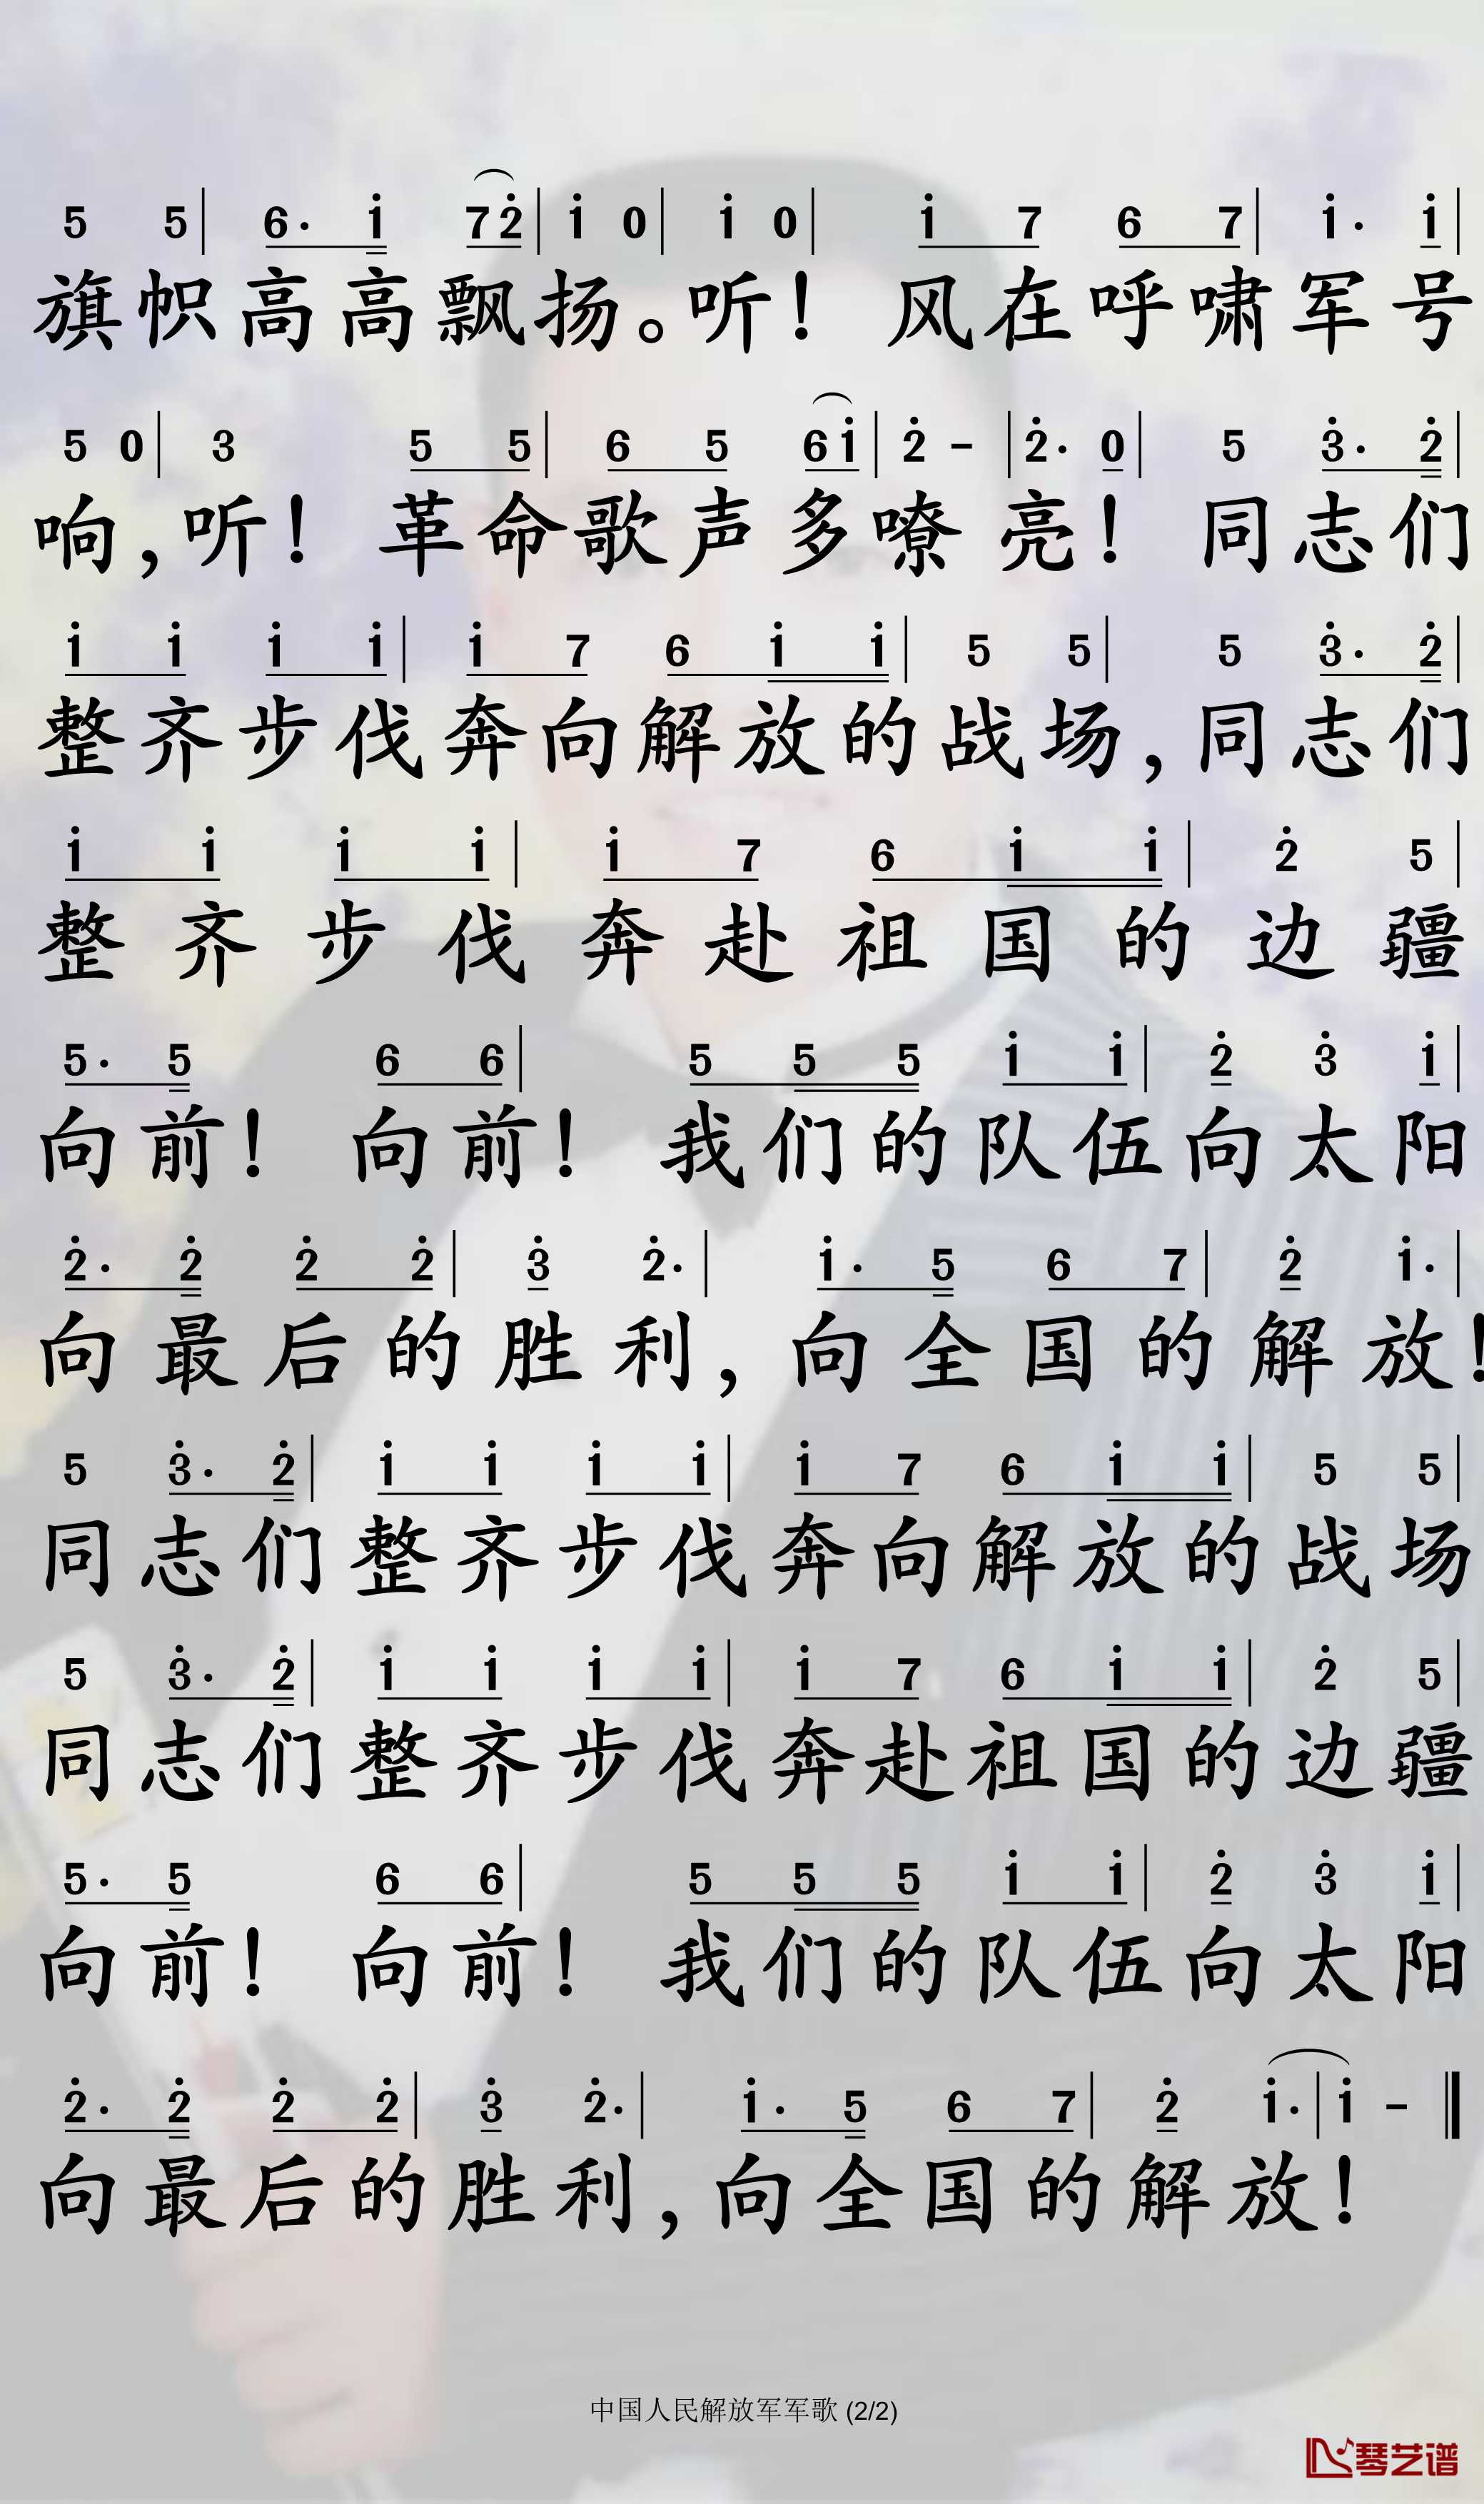 5 5 | 6· i 7 2 | i 0 | i 0 | i 7 6 7 | i· i |
旗帜高高飘扬。听！ 风在呼啸军号
5 0 | 3 5 5 | 6 5 6 i | 2 - | 2· 0 | 5 3· 2 |
响,听！ 革命歌声多嘹亮！ 同志们
i i i i | i 7 6 i i | 5 5 | 5 3· 2 |
整齐步伐奔向解放的战场,同志们
i i i i | i 7 6 i i | 2 5 |
整齐步伐奔赴祖国的边疆
5· 5 6 6 | 5 5 5 i i | 2 3 i |
向前！ 向前！ 我们的队伍向太阳
2· 2 2 2 | 3 2· | i· 5 6 7 | 2 i· |
向最后的胜利,向全国的解放！
5 3· 2 | i i i i | i 7 6 i i | 5 5 |
同志们整齐步伐奔向解放的战场
5 3· 2 | i i i i | i 7 6 i i | 2 5 |
同志们整齐步伐奔赴祖国的边疆
5· 5 6 6 | 5 5 5 i i | 2 3 i |
向前！ 向前！ 我们的队伍向太阳
2· 2 2 2 | 3 2· | i· 5 6 7 | 2 i· | i -
向最后的胜利,向全国的解放！
中国人民解放军军歌 (2/2)
琴艺谱